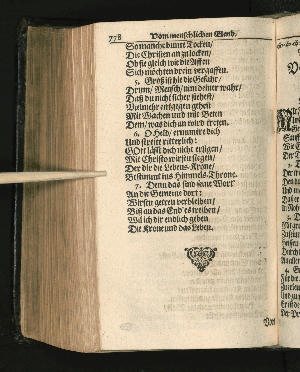 778 Vom menschlichen Elend.
So manche bunte Tocken/
Die Christen anzulocken/
Ob sie gleich wie die Affen
Sich möchten drein vergaffen.
5. Groß ist hie die Gefahr/
Drum/ Mensch/ nim deiner wahr/
Daß du nicht sicher stehest/
Vielmehr entgegen gehest
Mit Wachen und mit Beten
Dem/ was dich an wird treten.
6. O Held/ ermuntre dich
Und streite ritterlich:
GOtt läst dich nicht erligen/
Mit Christo wirst du siegen/
Der dir die Lebens-Krone/
Bestimmt ins Himmels-Throne.
7. Denn das sind seine Wort
An die Gemeine dort:
Wirst du getreu verbleiben/
Biß an das End es treiben/
Wil ich dir endlich geben
Die Krone und das Leben.